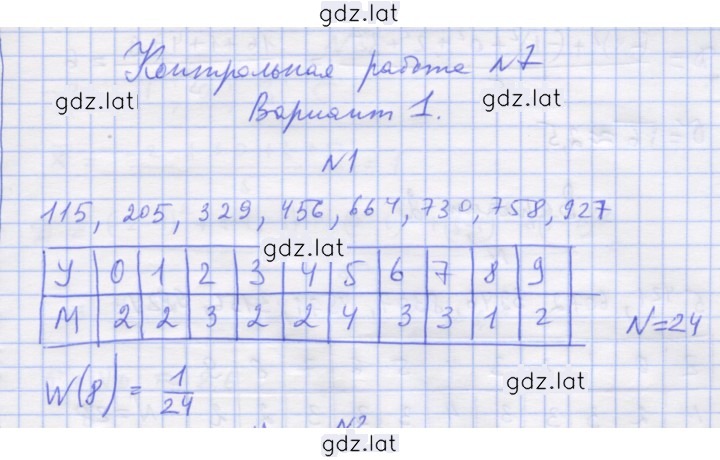 gdz.lat
Контрольная работа №7
gdz.lat
gdz.lat
Вариант 1.
№1
115, 205, 329, 456, 664, 730, 758, 927
gdz.lat
У 0 1 2 3 4 5 6 7 8 9
М 2 2 3 2 2 4 3 3 1 2
N=24
W(8) = 1/24
gdz.lat
№2
gdz.lat